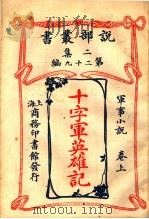 說部叢書
二集
第二十九編
軍事小說 卷上
十字軍英雄記
上海商務印書館發行